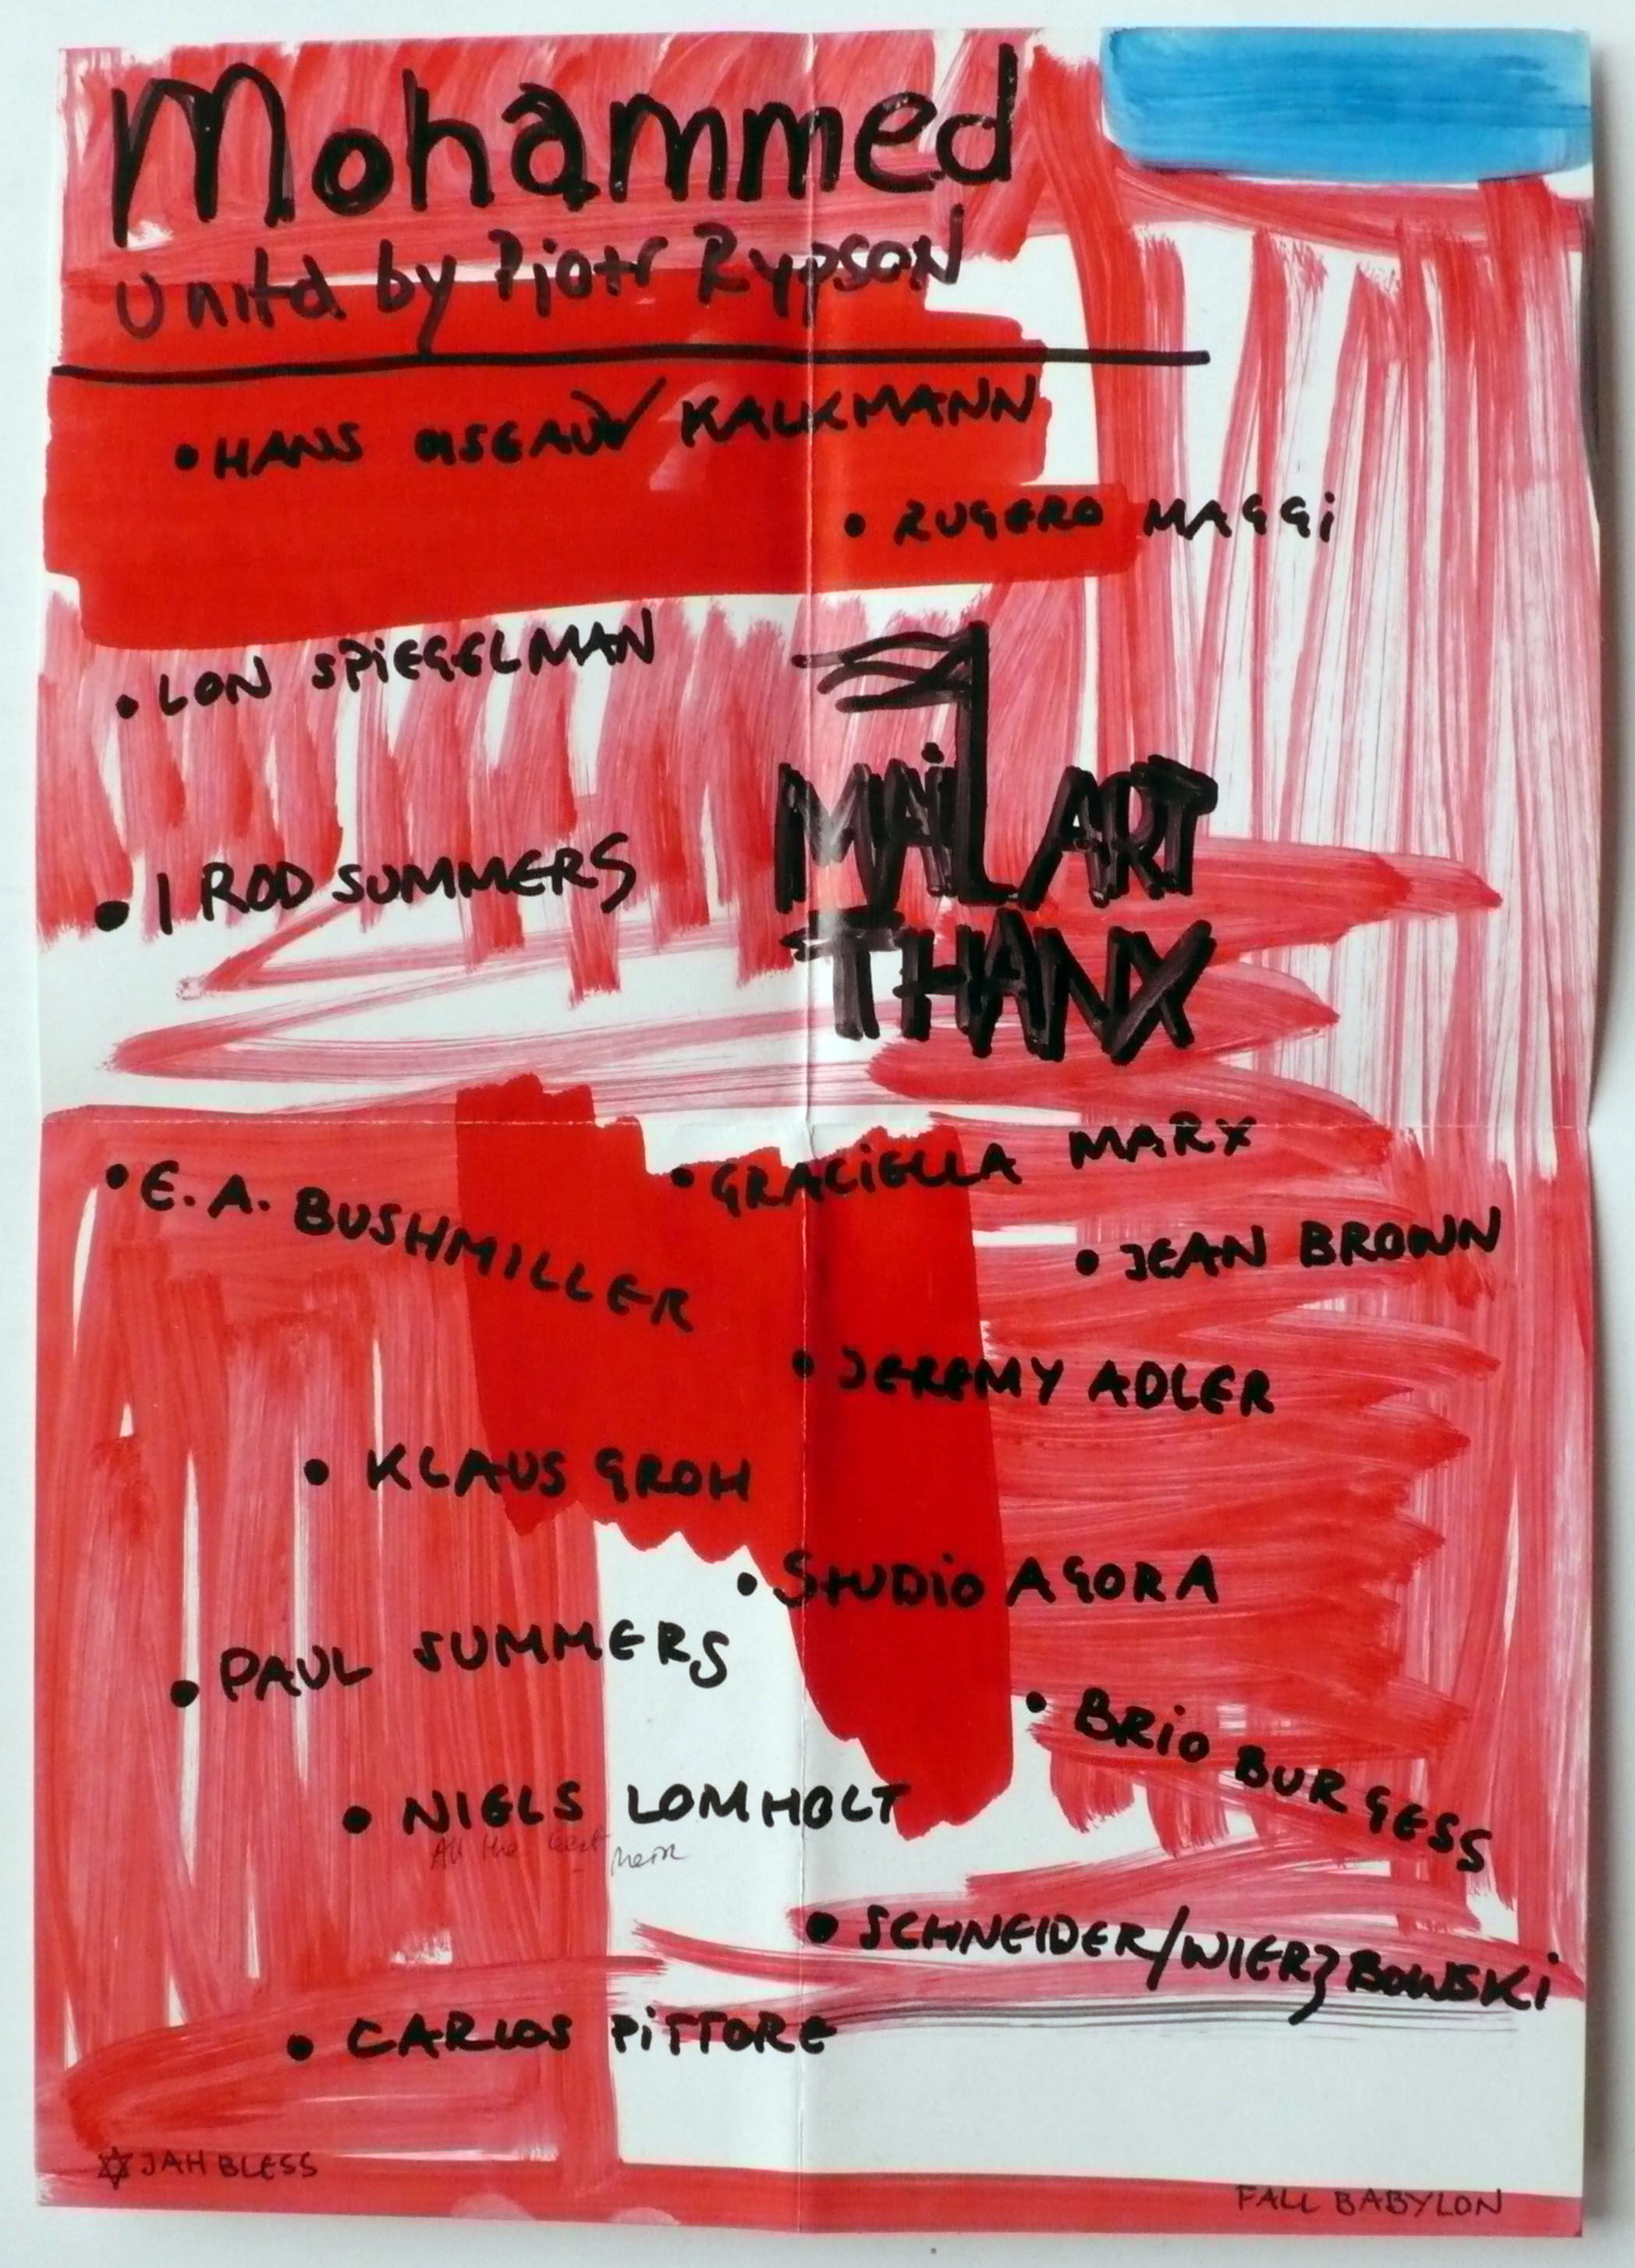 Mohammed
Unitd by Pjotr Rypson
• HANS KALKMANN
• RUGERO MAGGi
• LON SPiEGELMAN
MAiL ART
THANX
• I ROD SUMMERS
• E. A. BUSHMILLER
• GRACiELLA MARX
• JEAN BROWN
• JEREMY ADLER
• KLAUS GROH
• STUDiO AGORA
• PAUL SUMMERS
• BRiO BURGESS
• NIELS LOMHOLT
All the best
• SCHNEIDER/WIERZBOWSKi
• CARLOS PiTTORE
✡ JAH BLESS
FALL BABYLON